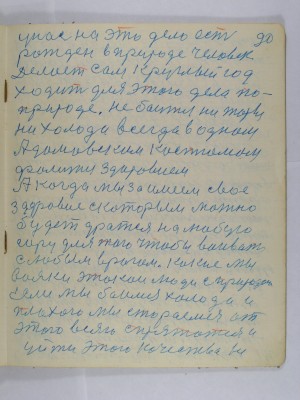 унас на это дело есть 90
рожден в природе человек
делает сам круглый год
ходит для этого дела по-
природе. не боится ни
ни холода всегда в одном
Адамовским костюмом
здаровием
А когда мы заимеем свое
здаровие скоторым можно
будет дратся на любую
гору для того чтобы воиват
с любым врагом. какие мы
вояки это кои люди с природою
если мы боимся холода и
плохого мы стараемся от
этого всего спрятатся и
уйти этого качества